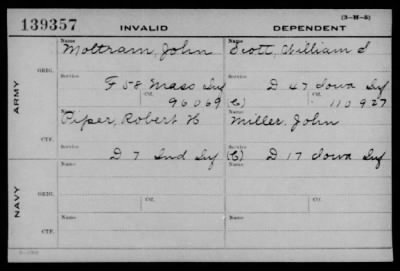 139357 INVALID DEPENDENT (3-H-5)
Name Name
Mottram, John Scott, William S
ARMY ORIG. Service Service
F 58 Mass Inf D 47 Iowa Inf
Ctf. Ctf.
96069 (C) 110927
CTF. Name Name
Piper, Robert H Miller, John
Service Service
D 7 Ind Inf (C) D 17 Iowa Inf
NAVY ORIG. Name Ctf. Name Ctf.
CTF. Name Name